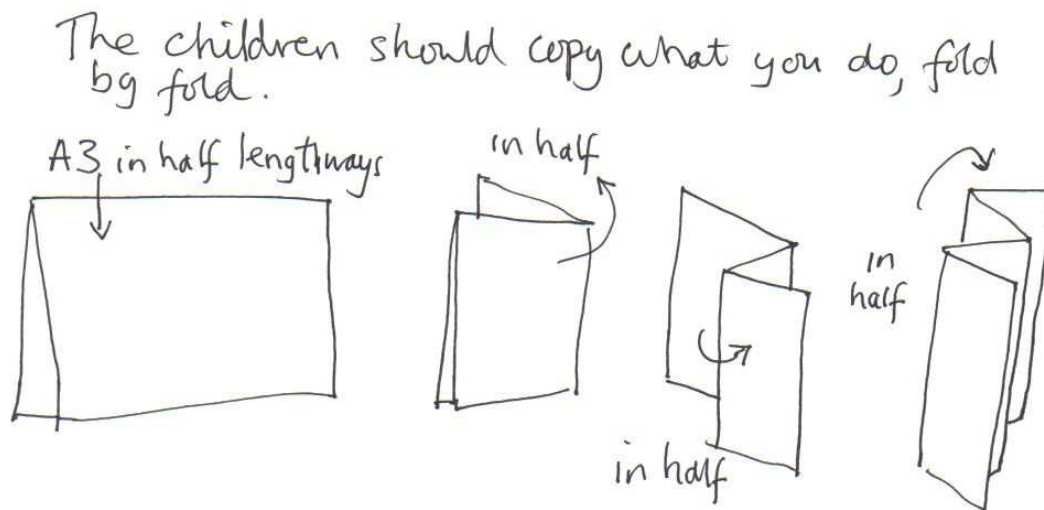 The children should copy what you do, fold
by fold.
A3 in half lengthways
in half
in half
in
half